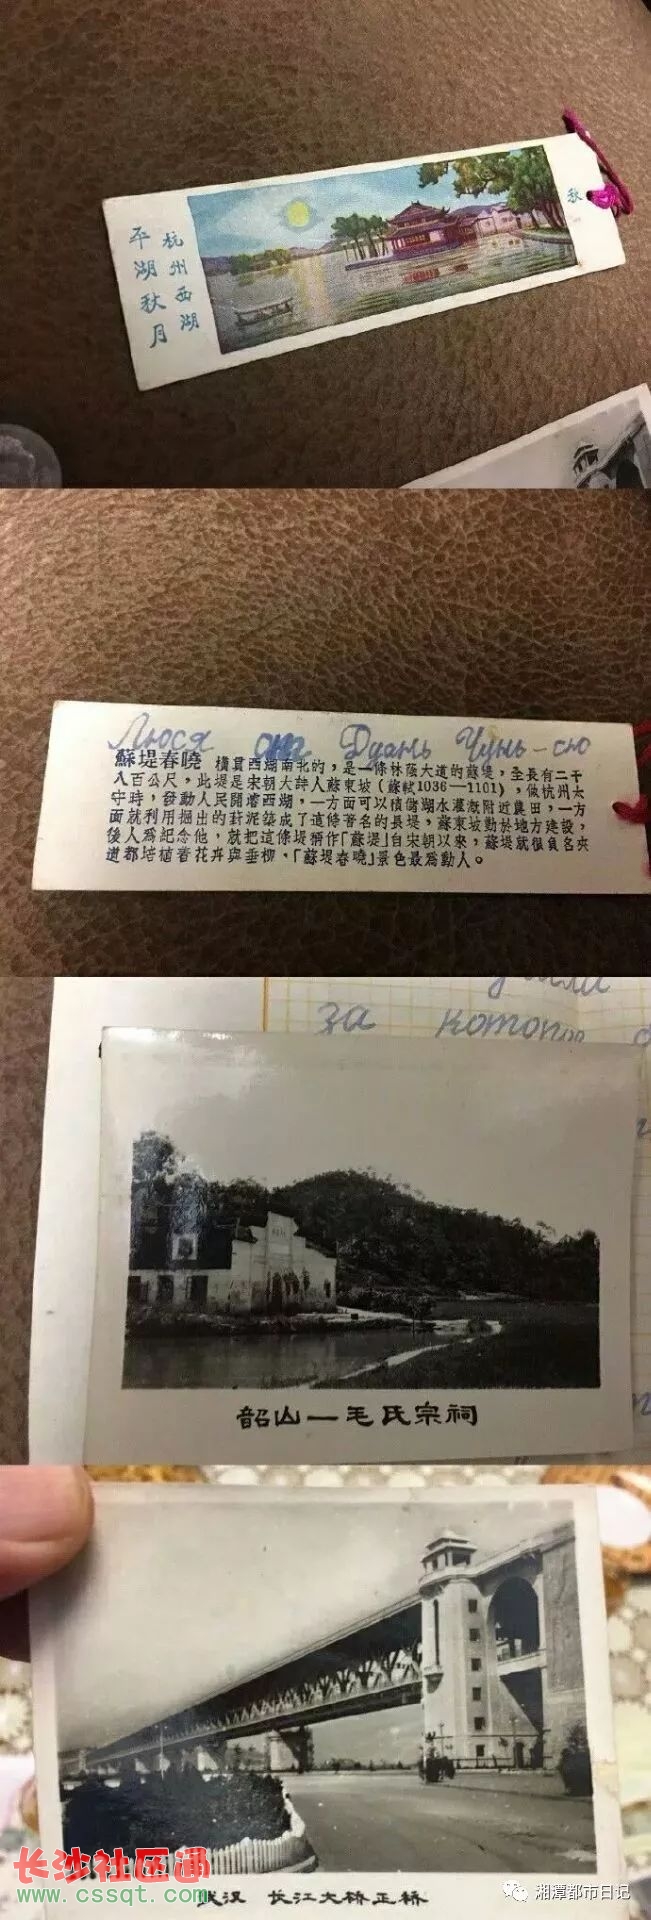 杭州西湖
平湖秋月
秋
Люся от Дуань Чунь-сю
蘇堤春曉 橫貫西湖南北的，是一條林蔭大道的蘇堤，全長有二千
八百公尺，此堤是宋朝大詩人蘇東坡（蘇軾1036—1101），做杭州太
守時，發動人民開濬西湖，一方面可以積儲湖水灌漑附近農田，一方
面就利用掘出的葑泥築成了這條著名的長堤，蘇東坡勤於地方建設，
後人爲紀念他，就把這條堤稱作「蘇堤」自宋朝以來，蘇堤就很負名夾
道都培植着花卉與垂柳，「蘇堤春曉」景色最爲動人。
за
韶山—毛氏宗祠
长沙社区通
www.cssqt.com
武汉 长江大桥正桥
湘潭都市日记